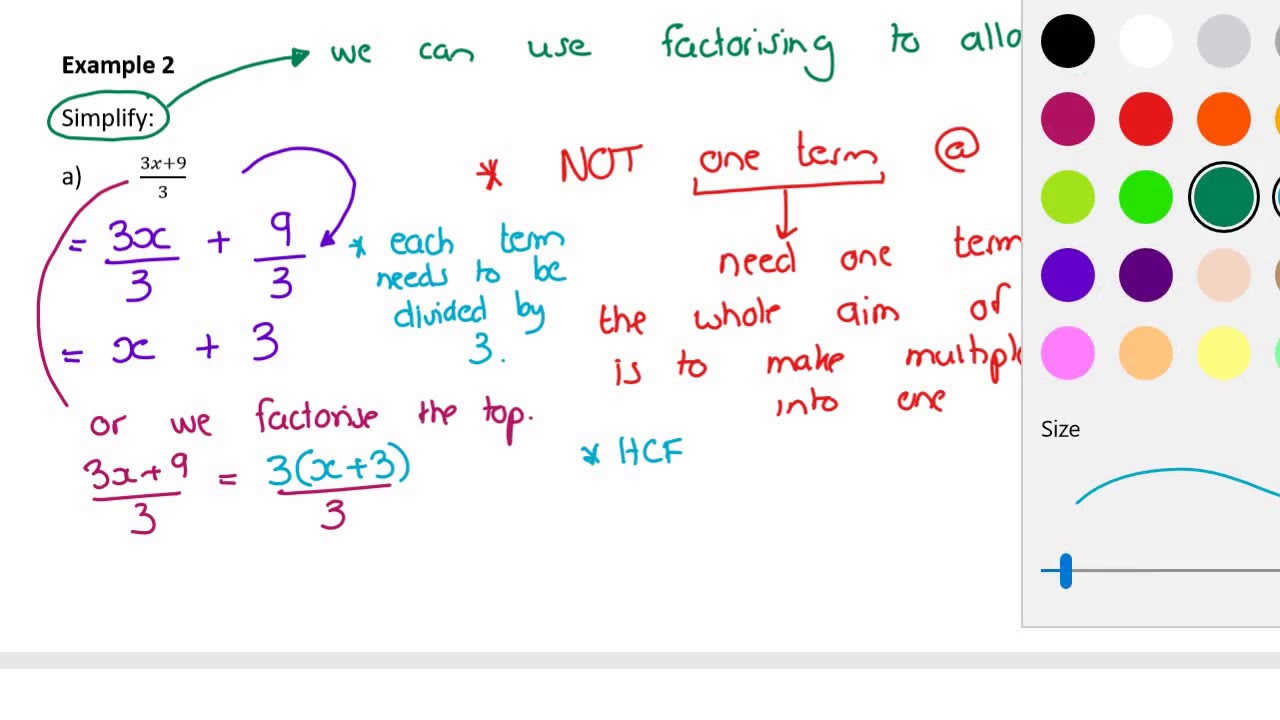 we can use factorising to allo
Example 2
Simplify:
a) 3x+9/3
* NOT one term @
= 3x/3 + 9/3
* each term
needs to be
divided by
3.
need one term
the whole aim of
is to make multiple
into one
= x + 3
or we factorise the top.
* HCF
3x+9/3 = 3(x+3)/3
Size